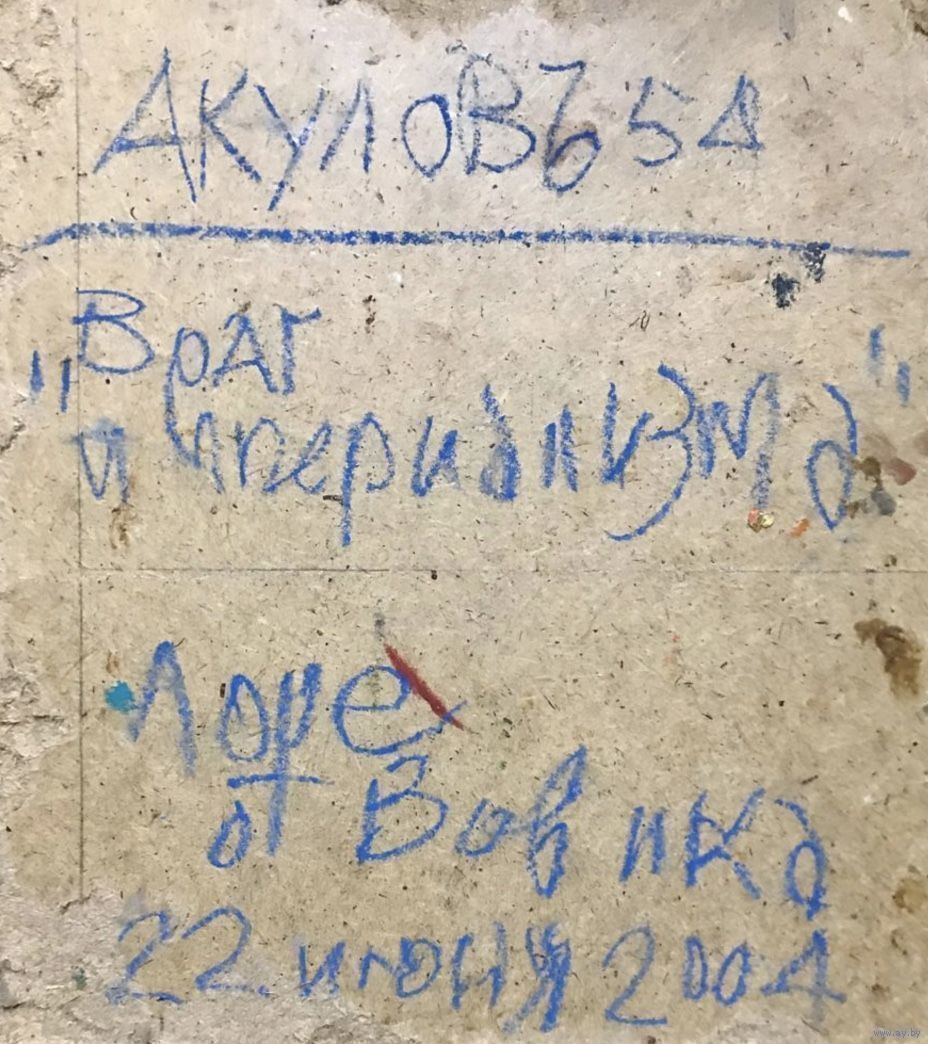 АКУЛОВ В 54
„Враг
империализма"
Лоре
от Вовика
22 июня 2004
www.ay.by